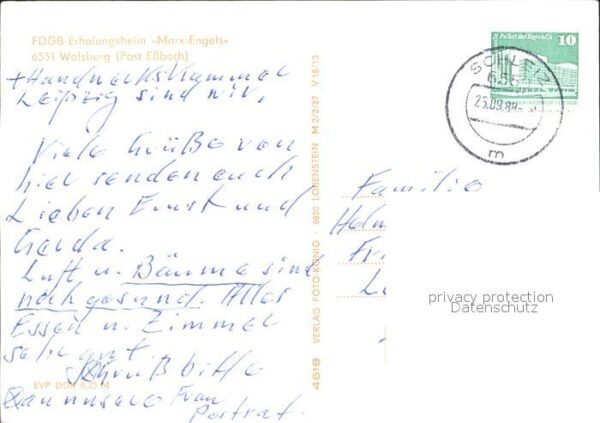 FDGB-Erholungsheim «Marx-Engels»
6551 Walsburg (Post Eßbach)
+ Handwerkskammer
Leipzig sind wir.
Viele Grüße von
hier senden euch
Lieben Ernst und
Gerda.
Luft u. Bäume sind
noch gesund. Alles
Essen u. Zimmer
sehr gut
Grüß bitte
Frau
EVP DDR 0,25 M
4618 VERLAG FOTO-KÖNIG · 6850 LOBENSTEIN M 2/2/87 V 18/13
Palast der Republik 10
DDR
SCHLEIZ
656
25.09.88
m
Familie
privacy protection
Datenschutz